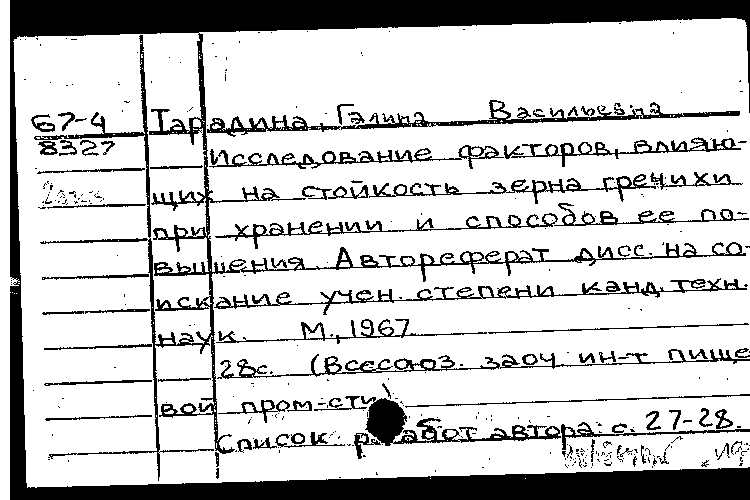 67-4
8327
Тарадина, Галина Васильевна
Исследование факторов, влияю-
щих на стойкость зерна гречихи
при хранении и способов ее по-
вышения. Автореферат дисс. на со-
искание учен. степени канд. техн.
наук. М., 1967.
28с. (Всесоюз. заоч. ин-т пище
вой пром-сти)
Список работ автора: с. 27-28.